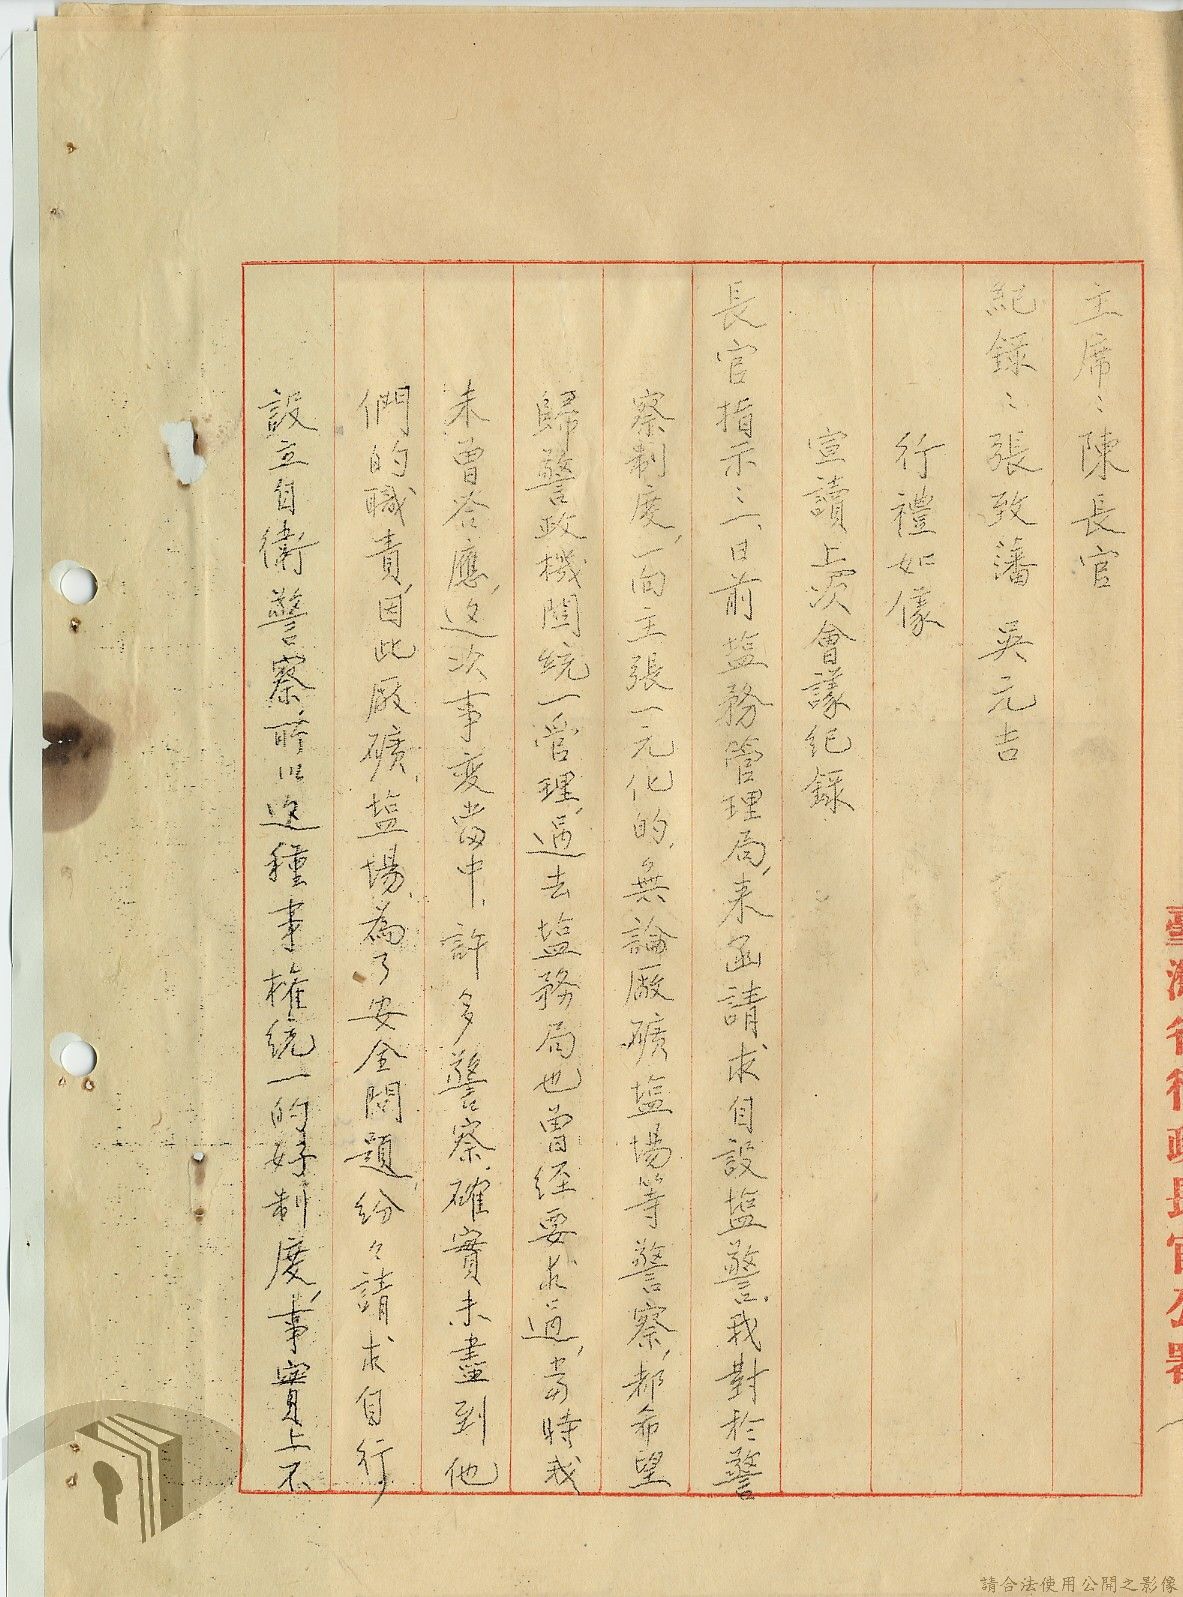 主席：陳長官
紀錄：張致藩 吳元吉
行禮如儀
宣讀上次會議紀錄
長官指示：一、日前塩務管理局，来函請求自設塩警，我對於警
察制度，一向主張一元化的，無論廠礦塩場等警察，都希望
歸警政機関統一管理，過去塩務局也曾經要求過，當時我
未曾答應，这次事变當中，許多警察，確實未盡到他
們的職責，因此廠礦，塩場，為了安全問題，紛々請求自行
設立自衛警察，所以这種事權統一的好制度，事實上不
臺灣省行政長官公署
請合法使用公開之影像